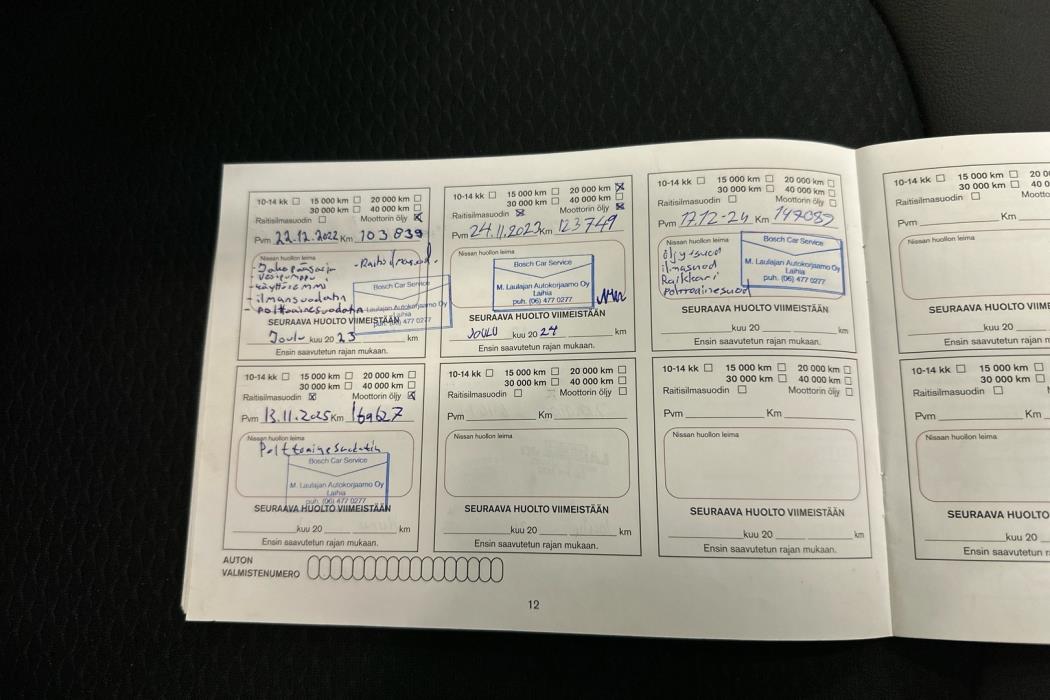 10-14 kk 15 000 km 20 000 km
30 000 km 40 000 km
Raitisilmasuodin Moottorin öljy
Pvm 22.12.2022 Km 103 839
Nissan huollon leima
- Jakopääsarja - Raitisilmasuod.
- vesipumppu
- käyttöremmi
- ilmansuodatin
- polttoainesuodatin
Bosch Car Service
M. Laulajan Autokorjaamo Oy
Laihia
puh. (06) 477 0277
SEURAAVA HUOLTO VIIMEISTÄÄN
Joulu kuu 20 23 km
Ensin saavutetun rajan mukaan.
10-14 kk 15 000 km 20 000 km
30 000 km 40 000 km
Raitisilmasuodin Moottorin öljy
Pvm 24.11.2023 Km 123749
Nissan huollon leima
Bosch Car Service
M. Laulajan Autokorjaamo Oy
Laihia
puh. (06) 477 0277
SEURAAVA HUOLTO VIIMEISTÄÄN
JOULU kuu 20 24 km
Ensin saavutetun rajan mukaan.
10-14 kk 15 000 km 20 000 km
30 000 km 40 000 km
Raitisilmasuodin Moottorin öljy
Pvm 17.12-24 Km 147089
Nissan huollon leima
öljy+suod
ilmasuod
Raikkari
Polttoainesuod
Bosch Car Service
M. Laulajan Autokorjaamo Oy
Laihia
puh. (06) 477 0277
SEURAAVA HUOLTO VIIMEISTÄÄN
kuu 20 km
Ensin saavutetun rajan mukaan.
10-14 kk 15 000 km 20 0
30 000 km 40 0
Raitisilmasuodin Mootto
Pvm Km
Nissan huollon leima
SEURAAVA HUOLTO VIIME
kuu 20
Ensin saavutetun rajan m
10-14 kk 15 000 km 20 000 km
30 000 km 40 000 km
Raitisilmasuodin Moottorin öljy
Pvm 13.11.2025 Km 169627
Nissan huollon leima
Polttoainesuodatin
Bosch Car Service
M. Laulajan Autokorjaamo Oy
Laihia
puh. (06) 477 0277
SEURAAVA HUOLTO VIIMEISTÄÄN
kuu 20 km
Ensin saavutetun rajan mukaan.
10-14 kk 15 000 km 20 000 km
30 000 km 40 000 km
Raitisilmasuodin Moottorin öljy
Pvm Km
Nissan huollon leima
SEURAAVA HUOLTO VIIMEISTÄÄN
kuu 20 km
Ensin saavutetun rajan mukaan.
10-14 kk 15 000 km 20 000 km
30 000 km 40 000 km
Raitisilmasuodin Moottorin öljy
Pvm Km
Nissan huollon leima
SEURAAVA HUOLTO VIIMEISTÄÄN
kuu 20 km
Ensin saavutetun rajan mukaan.
10-14 kk 15 000 km
30 000 km 40
Raitisilmasuodin Moo
Pvm Km
Nissan huollon leima
SEURAAVA HUOLTO
kuu 20
Ensin saavutetun r
AUTON
VALMISTENUMERO
12